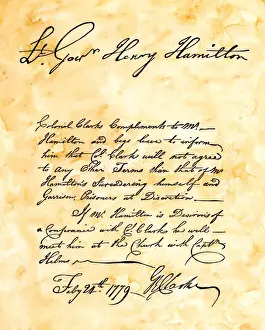 Lt. Govr. Henry Hamilton
Colonel Clarks Compliments to Mr.
Hamilton and begs leave to inform
him that Cl. Clark will not agree
to any Other Terms than that of Mr.
Hamilton's Surrendering himself and
Garrison, Prisoners at Discretion.
If Mr. Hamilton is Desirous of
a Conferance with Cl. Clark he will
meet him at the Church with Captn.
Helms
Feby 24th, 1779 G R Clark